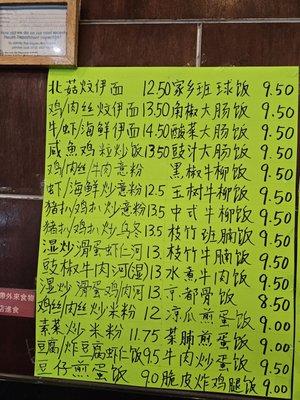 How did we do on our most recent
Health Department inspection?
北菇炆伊面 12.50
鸡/肉丝炆伊面 13.50
牛/虾/海鲜伊面 14.50
咸魚鸡粒炒饭 13.50
鸡/肉丝/牛肉意粉
虾/海鲜炒意粉 12.5
猪扒/鸡扒炒意粉 13.5
猪扒/鸡扒炒乌冬 13.5
湿炒滑蛋虾仁河 13.
豉椒牛肉河(湿) 13
湿炒滑蛋鸡/肉河 13.
鸡丝肉丝炒米粉 12
素菜炒米粉 11.75
豆腐/炸豆腐虾仁饭 9.5
豆仔煎蛋饭 9.0
家乡班球饭 9.50
角椒大肠饭 9.50
酸菜大肠饭 9.50
豉汁大肠饭 9.50
黑椒牛柳饭 9.50
玉树牛柳饭 9.50
中式牛柳饭 9.50
枝竹班腩饭 9.50
枝竹牛腩饭 9.50
水煮牛肉饭 9.50
京都骨饭 8.50
凉瓜煎蛋饭 9.00
菜脯煎蛋饭 9.00
牛肉炒蛋饭 9.50
脆皮炸鸡腿饭 9.00
帶外來食物
店進食